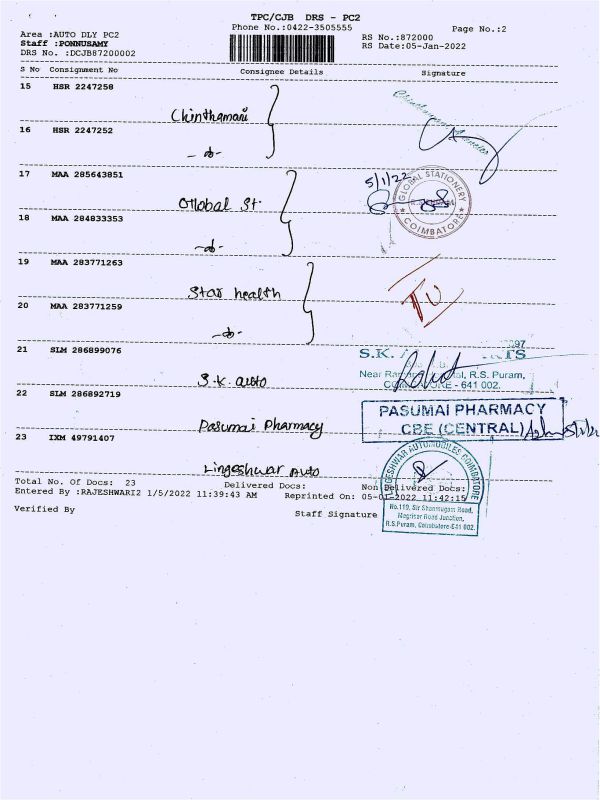 TPC/CJB DRS - PC2
Phone No.:0422-3505555
Page No.:2
Area :AUTO DLY PC2
RS No.:872000
Staff :PONNUSAMY
RS Date:05-Jan-2022
DRS No. :DCJB87200002
S No Consignment No Consignee Details Signature
15 HSR 2247258
Chinthamani
16 HSR 2247252
-do-
17 MAA 285643851
5/1/22
GLOBAL STATIONERY
COIMBATORE
Gllobal St.
18 MAA 284833353
-do-
19 MAA 283771263
Star health
20 MAA 283771259
-do-
21 SLM 286899076
S.K.
Near R.S. Puram,
- 641 002.
S.K. auto
22 SLM 286892719
PASUMAI PHARMACY
CBE (CENTRAL)
Pasumai Pharmacy
23 IXM 49791407
LINGESHWAR AUTOMOBILES COIMBATORE
Lingeshwar Auto
Total No. Of Docs: 23 Delivered Docs: Non Delivered Docs:
Entered By :RAJESHWARI2 1/5/2022 11:39:43 AM Reprinted On: 05-01-2022 11:42:15
No.119, Sir Shanmugam Road,
Road Junction,
R.S.Puram, Coimbatore-641 002.
Verified By Staff Signature